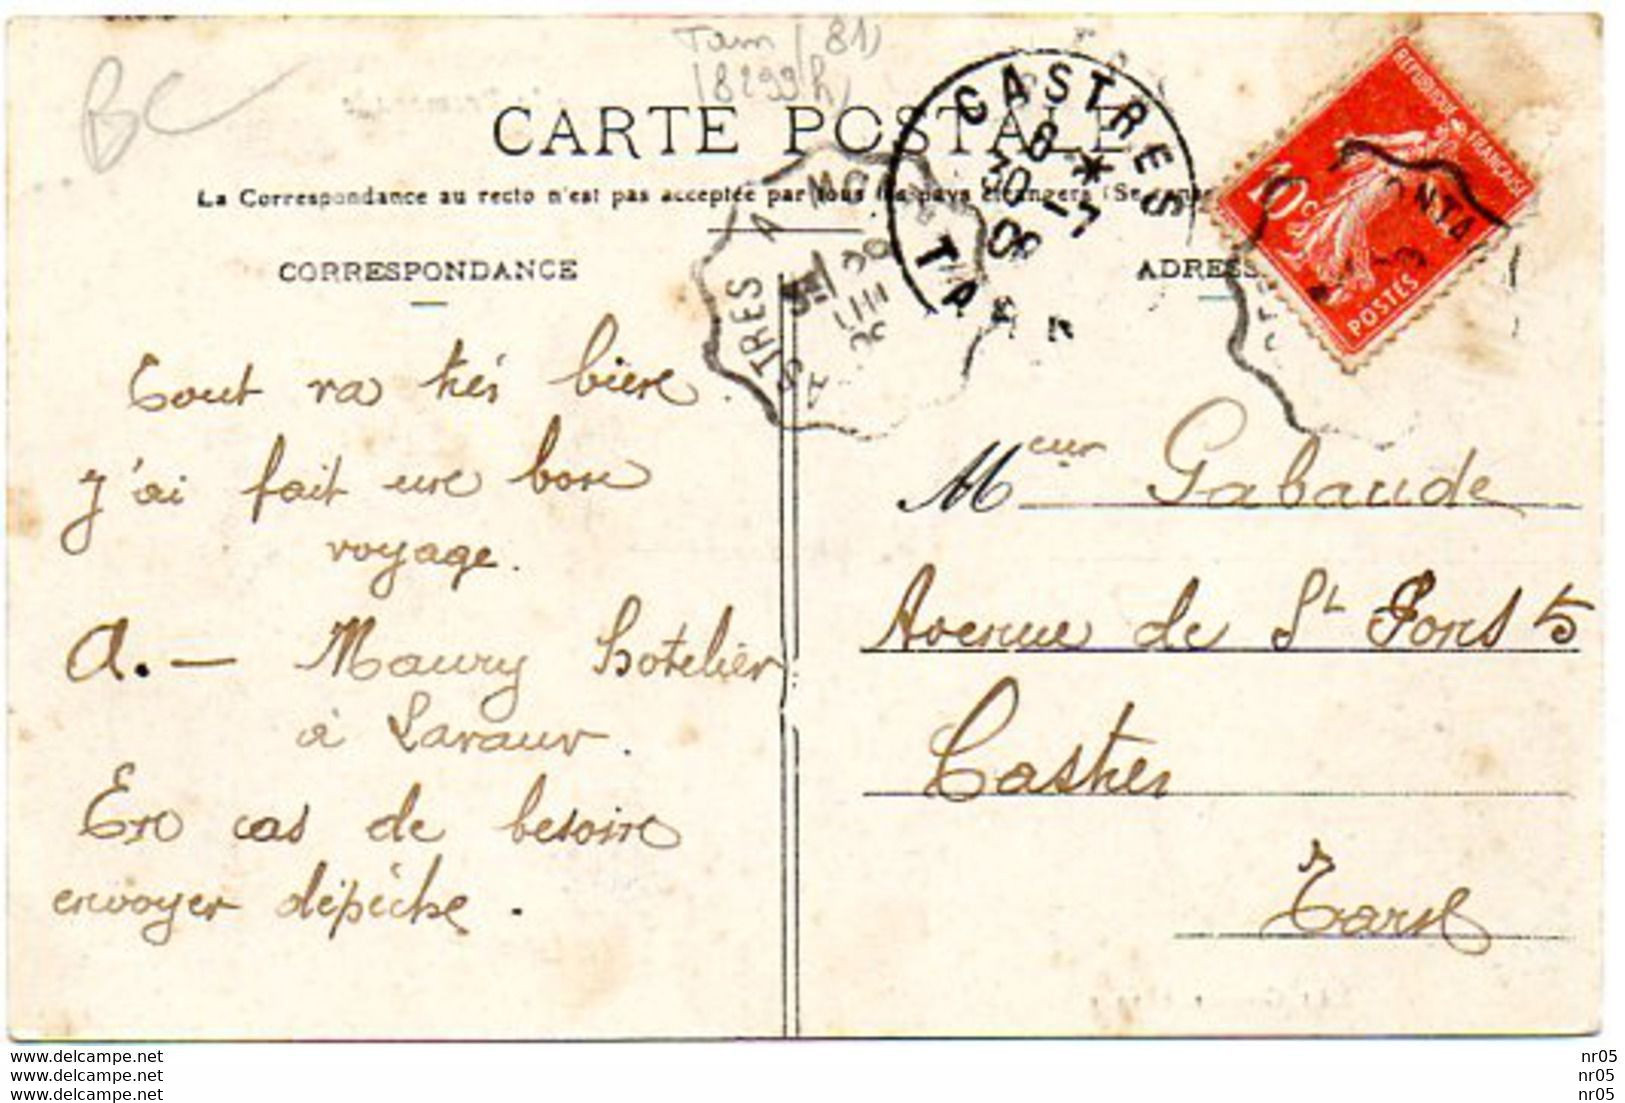 BC
Tarn (81)
(8299h)
CARTE POSTALE
La Correspondance au recto n'est pas acceptée par tous les pays étrangers (Se rense
CORRESPONDANCE
ADRESS
CASTRES
8 *
30 -7
08
TARN
STRES A MO
10c
RÉPUBLIQUE FRANÇAISE
POSTES
ONTA
Tout va très bien.
J'ai fait une bon
voyage.
A. — Maury hotelier
à Lavaur.
En cas de besoin
envoyer dépêche.
Mʳ Gabaude
Avenue de Sᵗ Pons 5
Castres
Tarn
www.delcampe.net
www.delcampe.net
www.delcampe.net
nr05
nr05
nr05